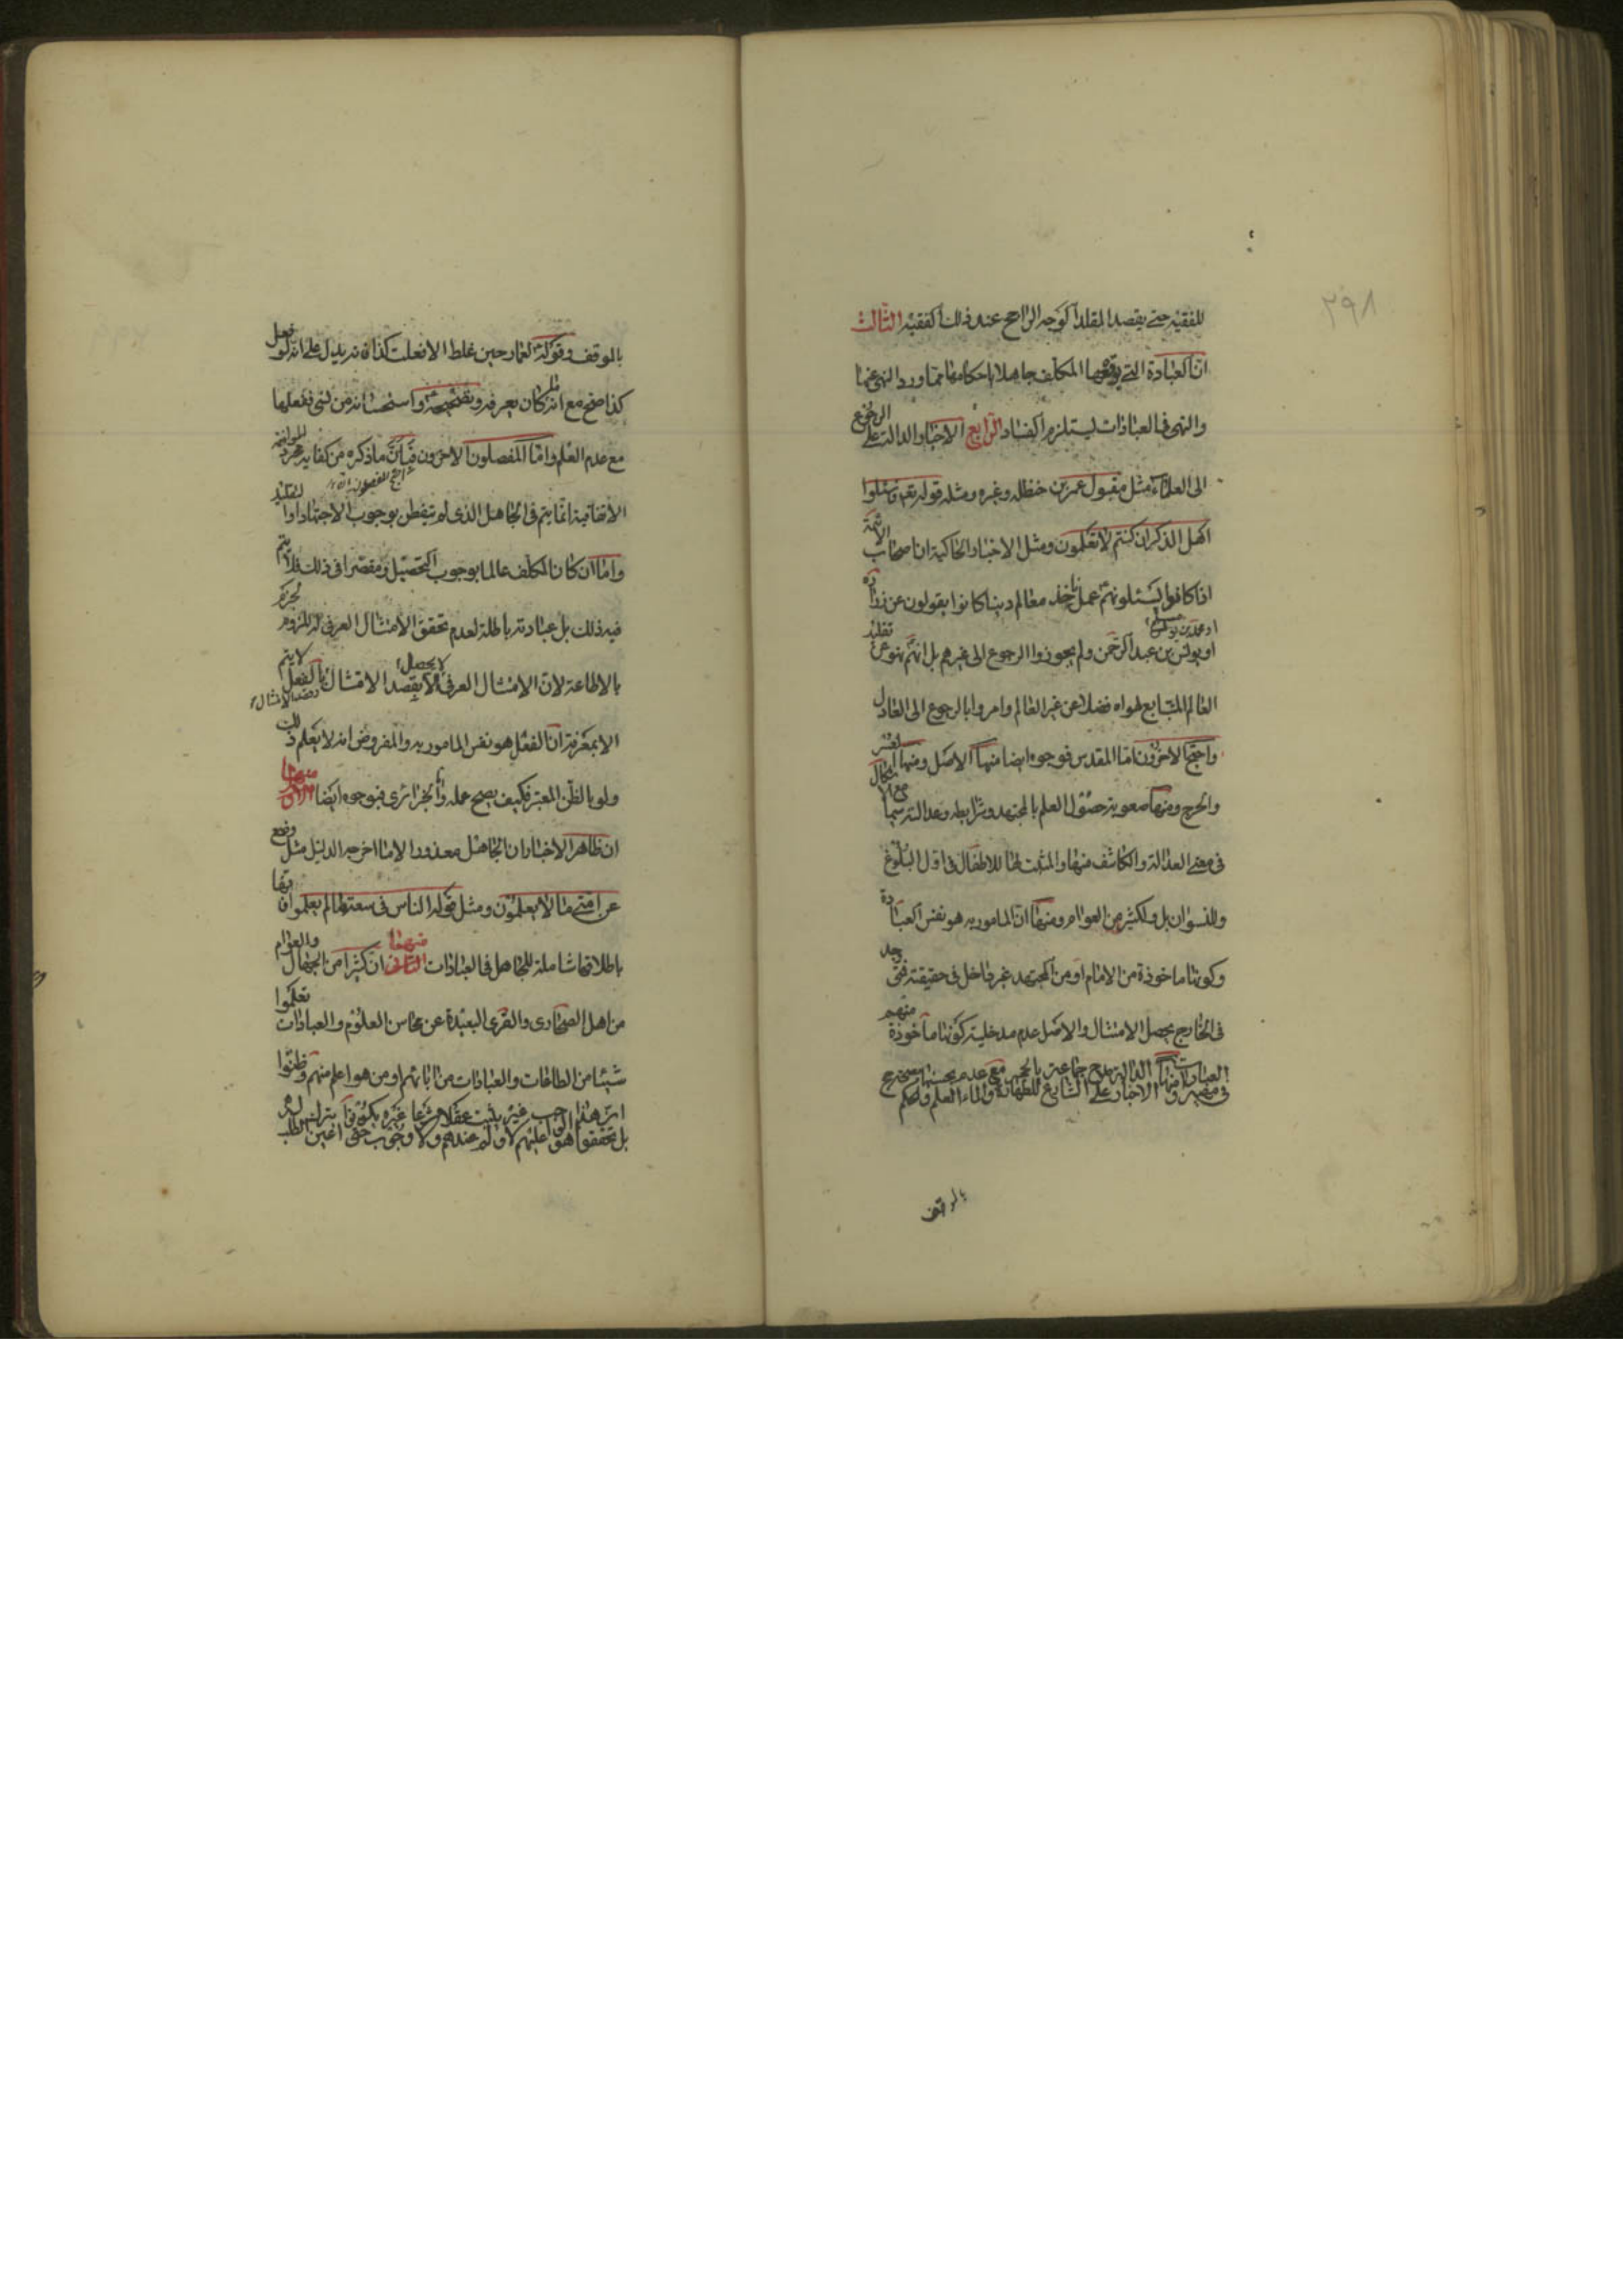 ٢٩٨
للفقيه حتى يقصد المقلد الوجه الراجح عند ذلك الفقيه الثالث
ان العبادة التي يوقعها المكلف جاهلا باحكامها مما ورد النهى عنها
والنهى في العبادات يستلزم الفساد الرابع الاخبار الدالة على الرجوع
الى العلماء مثل مقبول عمر بن حنظله وغيره ومثله قوله تعه وسئلوا
اهل الذكر ان كنتم لا تعلمون ومثل الاخبار الحاكية ان اصحاب الائمة
اذا كانوا يسئلونهم عمن ناخذ معالم ديننا كانوا يقولون عن زرارة
او محمد بن مسلم
او يونس بن عبد الرحمن ولم يجوزوا الرجوع الى غيرهم بل انهم نهو عن تقليد
العالم المتابع لهواه فضلا عن غير العالم وامروا بالرجوع الى العادل
واحتج الاخرون اما المقدس فبوجوه ايضا منها الاصل ومنها العسر
والحرج ومنها صعوبة حصول العلم بالمجتهد وشرايطه وعدالته سيما مع الاشكال
في معنى العدالة والكاشف منها والمثبت لها للاطفال في اول البلوغ
وللنسوان بل ولكثير من العوام ومنها ان المامور به هو نفس العبادة
وكونها ماخوذة من الامام او من المجتهد غير داخل في حقيقته فمتى وجد
في الخارج يحصل الامتثال والاصل عدم مدخلية كونها ماخوذة منهم
في العبادات ومنها الاخبار الدالة على
بالوقف
بالموقف وقوله لعمار حين غلط الا فعلت كذا فانه يدل على انه لو فعل
كذا صح مع انه ما كان يعرفه وتصحيحه واستحسانه من نسى ففعلها
مع عدم العلم واما المفصلون الاخرون فبان ما ذكره من كفاية مجرد الموافقة
الاتفاقية انما يتم في الجاهل الذى لم يتفطن بوجوب الاجتهاد او التقليد
واما ان كان المكلف عالما بوجوب التحصيل ومقصرا في ذلك فلا يتم
فيه ذلك بل عبادته باطلة لعدم تحقق الامتثال العرفى
بالاطاعة لان الامتثال العرفى لا يحصل الا بقصد الامتثال بالفعل لا يتم
قصد الامتثال
الا بمعرفة ان الفعل هو نفس المامور به والمفروض انه لا يعلم ذلك
ولو بالظن المعتبر فكيف يصح عمله واما الجزائرى فبوجوه ايضا منها
ان ظاهر الاخبار ان الجاهل معذور الا ما اخرجه الدليل مثل رفع
عن امتى ما لا يعلمون ومثل قوله الناس في سعة ما لم يعلموا فانها
باطلاقها شاملة للجاهل في العبادات ومنها ان كثيرا من الجهال والعوام
من اهل الصحارى والقرى البعيدة عن محاسن العلوم والعبادات تعلموا
شيئا من الطاعات والعبادات من ابائهم او من هو اعلم منهم وظنوا